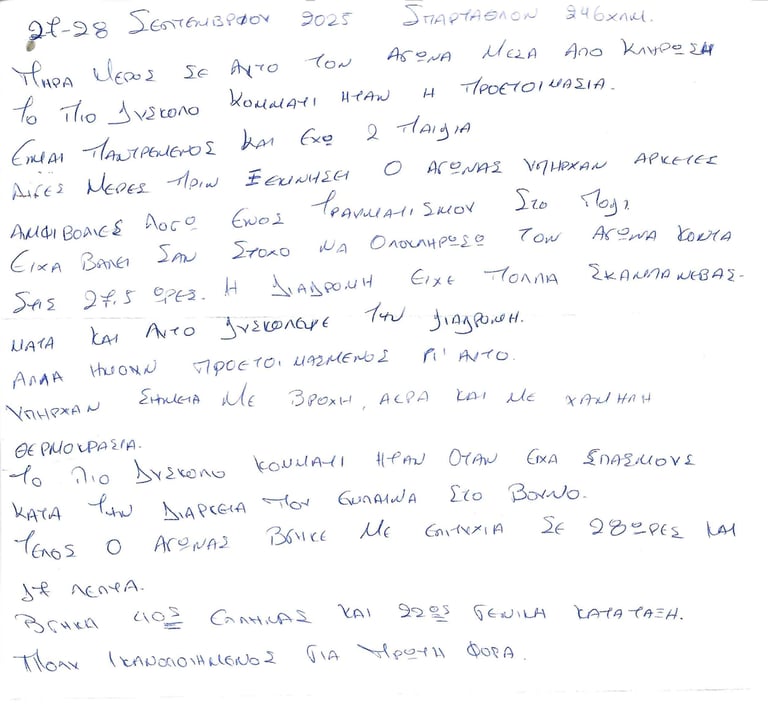 27-28 ΣΕΠΤΕΜΒΡΙΟΥ 2025 ΣΠΑΡΤΑΘΛΟΝ 246ΧΛΜ.
ΠΗΡΑ ΜΕΡΟΣ ΣΕ ΑΥΤΟ ΤΟΝ ΑΓΩΝΑ ΜΕΣΑ ΑΠΟ ΚΛΗΡΩΣΗ
ΤΟ ΠΙΟ ΔΥΣΚΟΛΟ ΚΟΜΜΑΤΙ ΗΤΑΝ Η ΠΡΟΕΤΟΙΜΑΣΙΑ.
ΕΙΜΑΙ ΠΑΝΤΡΕΜΕΝΟΣ ΚΑΙ ΕΧΩ 2 ΠΑΙΔΙΑ
ΛΙΓΕΣ ΜΕΡΕΣ ΠΡΙΝ ΞΕΚΙΝΗΣΕΙ Ο ΑΓΩΝΑΣ ΥΠΗΡΧΑΝ ΑΡΚΕΤΕΣ
ΑΜΦΙΒΟΛΙΕΣ ΛΟΓΟ ΕΝΟΣ ΤΡΑΥΜΑΤΙΣΜΟΥ ΣΤΟ ΠΟΔΙ
ΕΙΧΑ ΒΑΛΕΙ ΣΑΝ ΣΤΟΧΟ ΝΑ ΟΛΟΚΛΗΡΩΣΩ ΤΟΝ ΑΓΩΝΑ ΚΟΝΤΑ
ΣΤΙΣ 27.5 ΩΡΕΣ. Η ΔΙΑΔΡΟΜΗ ΕΙΧΕ ΠΟΛΛΑ ΣΚΑΜΠΑΝΕΒΑΣ-
ΜΑΤΑ ΚΑΙ ΑΥΤΟ ΔΥΣΚΟΛΕΨΕ ΤΗΝ ΔΙΑΔΡΟΜΗ.
ΑΛΛΑ ΗΜΟΥΝ ΠΡΟΕΤΟΙΜΑΣΜΕΝΟΣ ΓΙ' ΑΥΤΟ.
ΥΠΗΡΧΑΝ ΣΗΜΕΙΑ ΜΕ ΒΡΟΧΗ, ΑΕΡΑ ΚΑΙ ΜΕ ΧΑΜΗΛΗ
ΘΕΡΜΟΚΡΑΣΙΑ.
ΤΟ ΠΙΟ ΔΥΣΚΟΛΟ ΚΟΜΜΑΤΙ ΗΤΑΝ ΟΤΑΝ ΕΙΧΑ ΣΠΑΣΜΟΥΣ
ΚΑΤΑ ΤΗΝ ΔΙΑΡΚΕΙΑ ΤΟΥ ΣΤΟ ΒΟΥΝΟ.
ΤΕΛΟΣ Ο ΑΓΩΝΑΣ ΒΓΗΚΕ ΜΕ ΕΠΙΤΥΧΙΑ ΣΕ 28ΩΡΕΣ ΚΑΙ
17 ΛΕΠΤΑ.
ΒΓΗΚΑ 4ΙΟΣ ΕΛΛΗΝΑΣ ΚΑΙ 22ΟΣ ΓΕΝΙΚΗ ΚΑΤΑΤΑΞΗ.
ΠΟΛΥ ΙΚΑΝΟΠΟΙΗΜΕΝΟΣ ΓΙΑ ΠΡΩΤΗ ΦΟΡΑ.